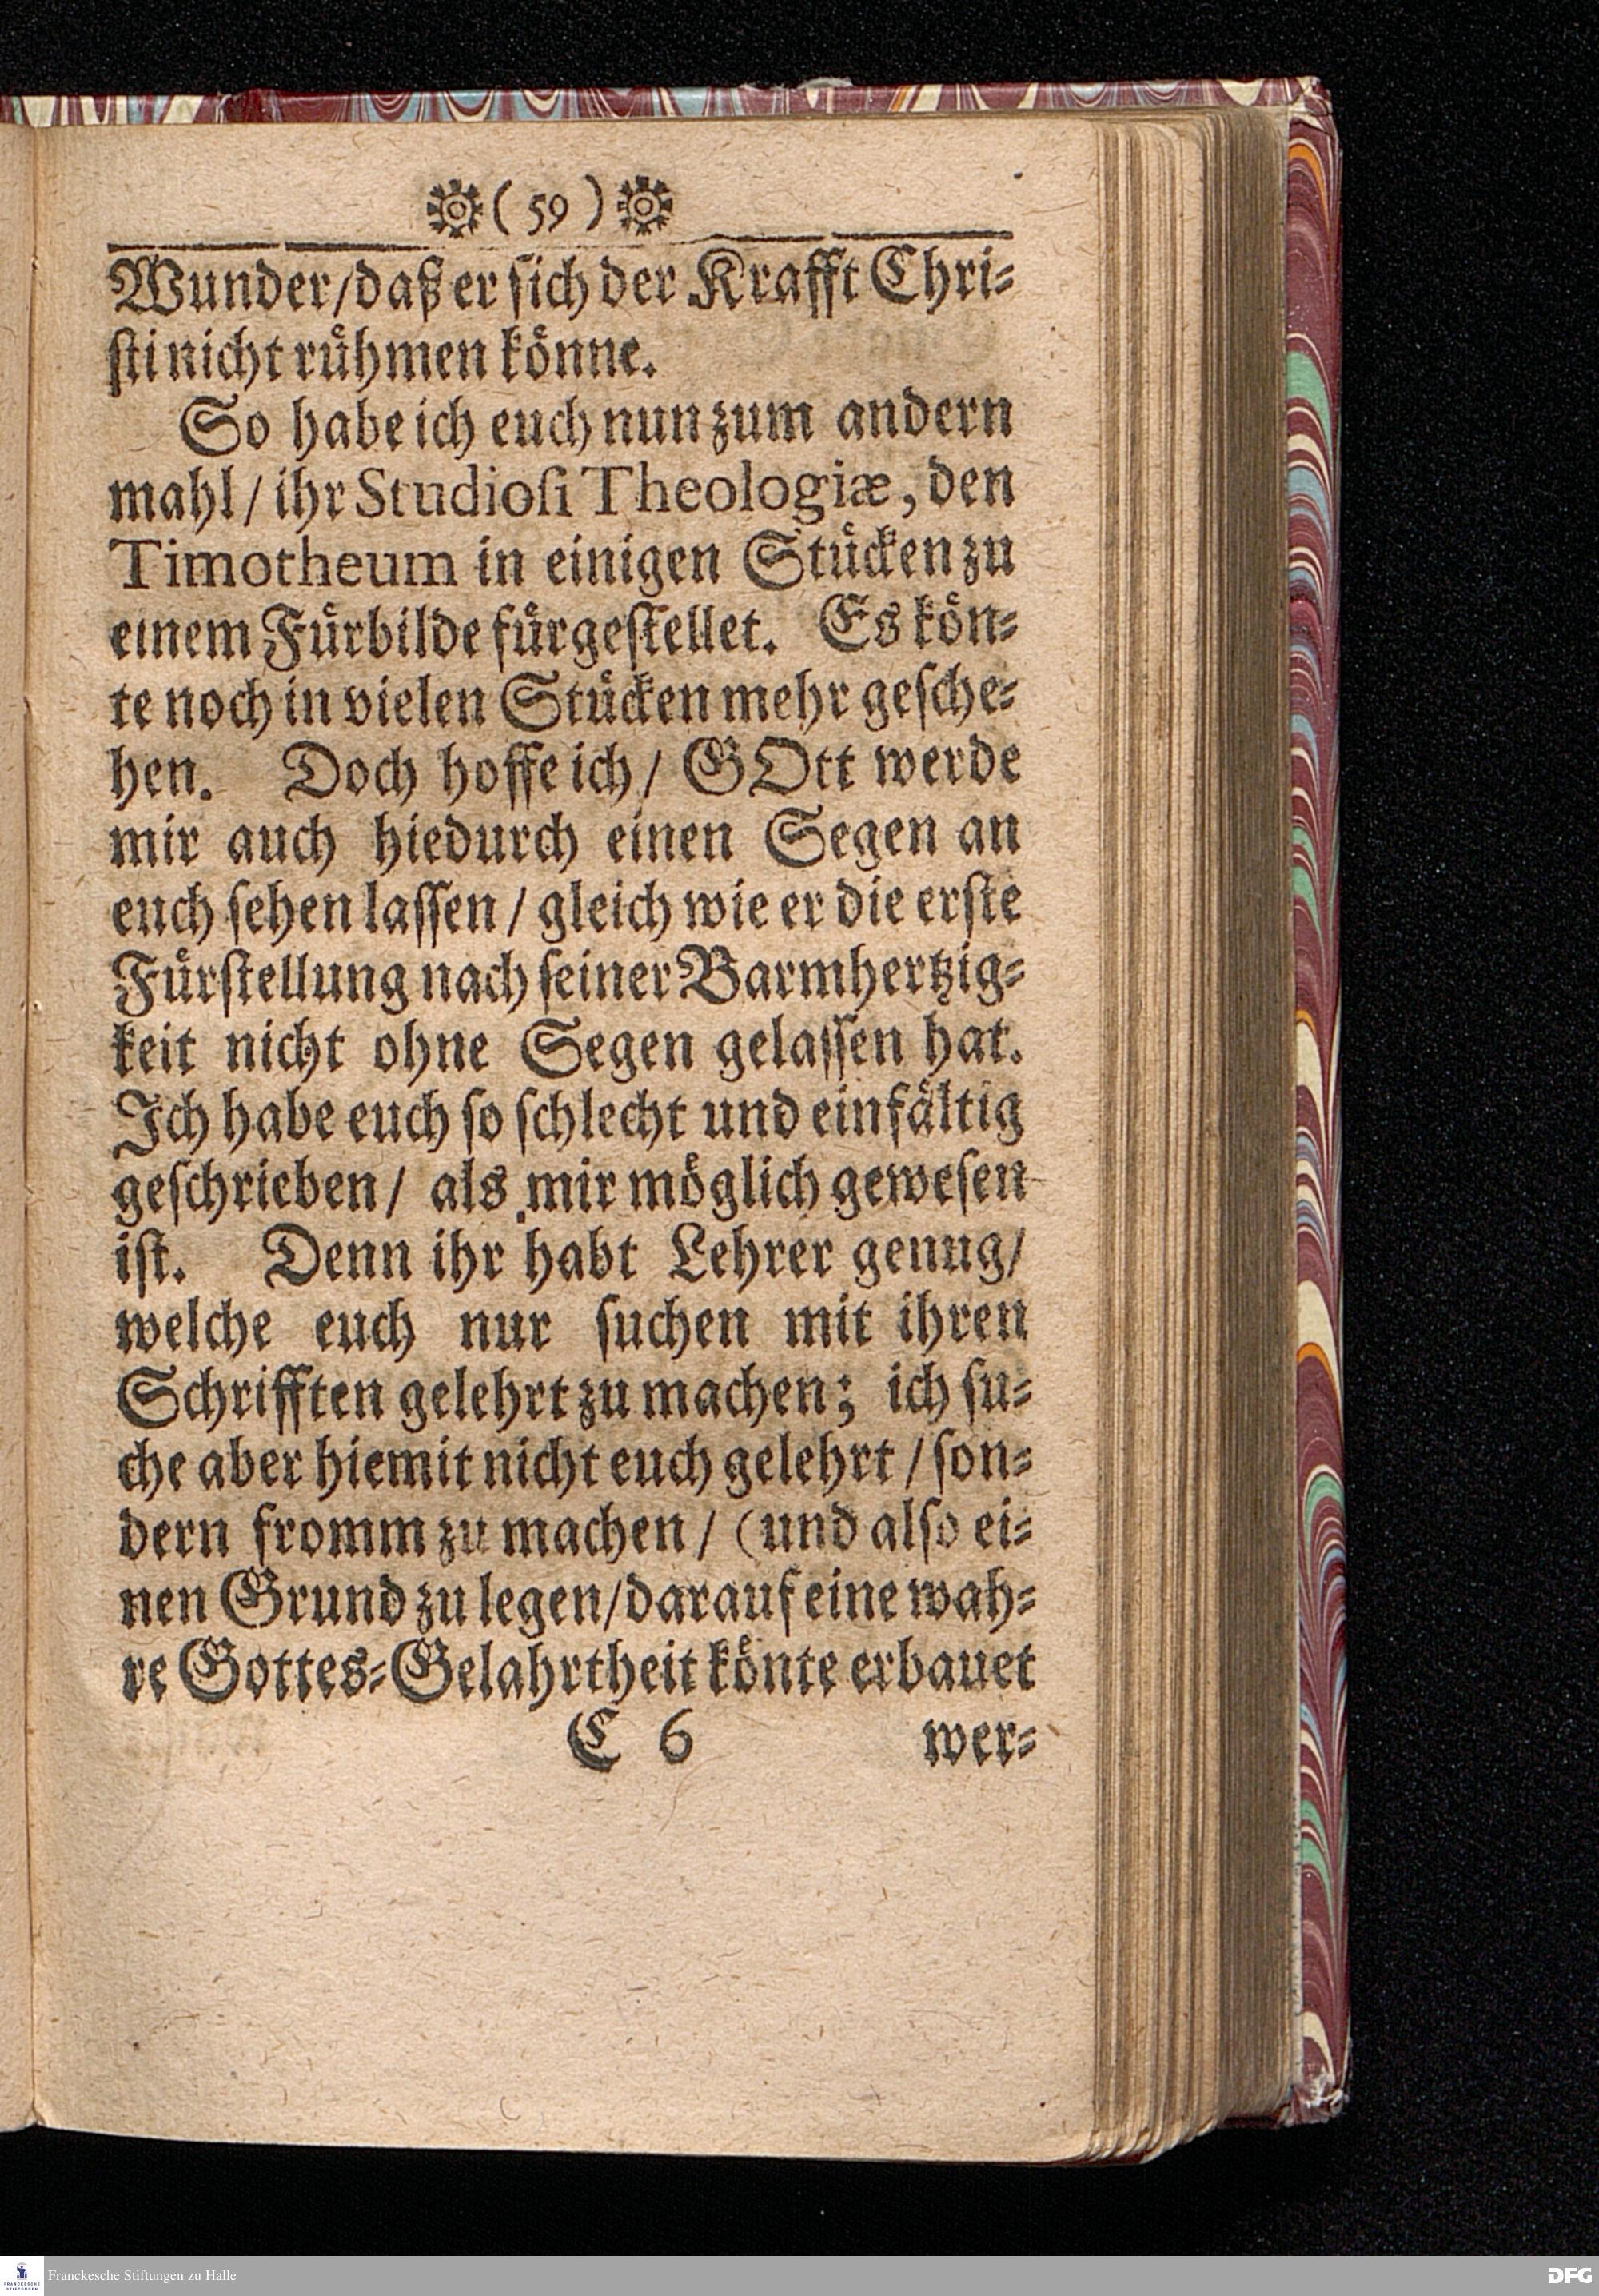 ( 59 )
Wunder/daß er sich der Krafft Chri-
sti nicht rühmen könne.
So habe ich euch nun zum andern
mahl/ ihr Studiosi Theologiæ, den
Timotheum in einigen Stücken zu
einem Fürbilde fürgestellet. Es kön-
te noch in vielen Stücken mehr gesche-
hen. Doch hoffe ich/ GOtt werde
mir auch hiedurch einen Segen an
euch sehen lassen/ gleich wie er die erste
Fürstellung nach seiner Barmhertzig-
keit nicht ohne Segen gelassen hat.
Ich habe euch so schlecht und einfältig
geschrieben/ als mir möglich gewesen
ist. Denn ihr habt Lehrer genug/
welche euch nur suchen mit ihren
Schrifften gelehrt zu machen; ich su-
che aber hiemit nicht euch gelehrt/ son-
dern fromm zu machen/ (und also ei-
nen Grund zu legen/darauf eine wah-
re Gottes-Gelahrtheit könte erbauet
C 6 wer-
FRANCKESCHE STIFTUNGEN
Franckesche Stiftungen zu Halle
DFG